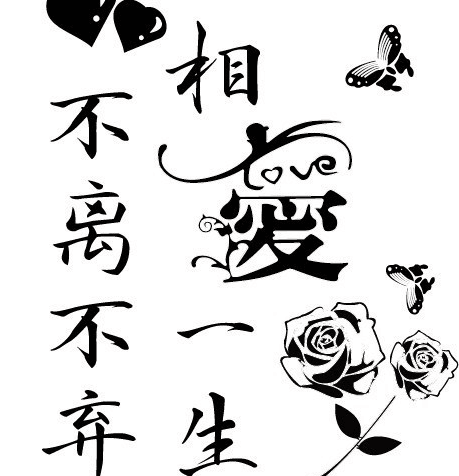 相愛一生
love
不离不弃